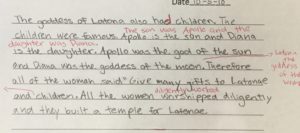 Date 10-3-10
The goddess of Latona also had children. The
The son was Apollo and the
children were famous Apollo is the son and Diana
daughter was Diana.
is the daughter. Apollo was the god of the sun
and Diana was the goddess of the moon. Therefore
all of the woman said "Give many gifts to Latonae
and children. All the women worshipped diligently
and they built a temple for Latonae.